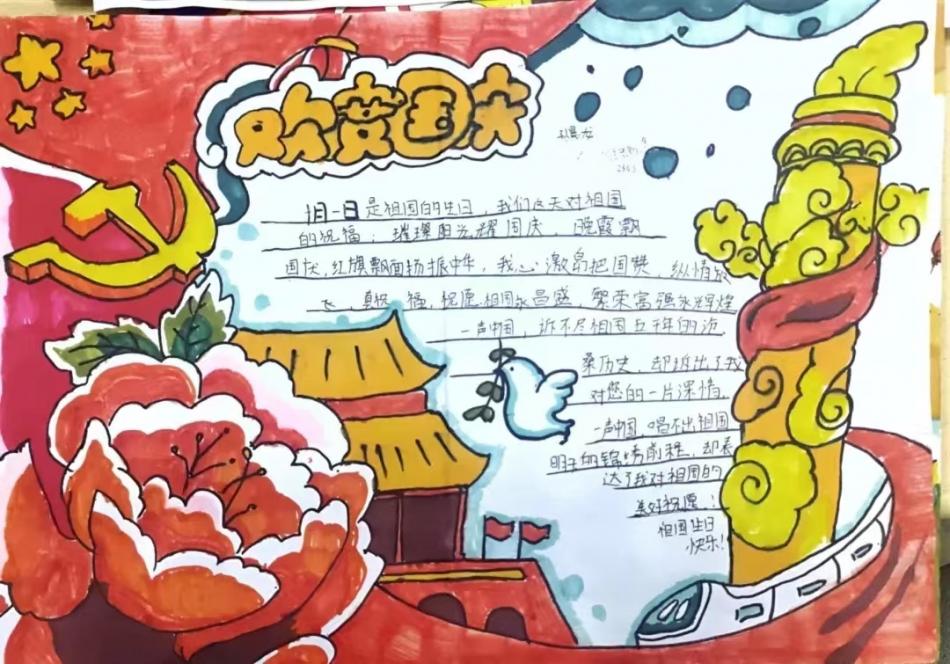 欢度国庆
十月一日是祖国的生日，我们这天对祖国
的祝福：璀璨阳光耀国庆，晚霞飘
国庆，红旗飘面扬振中华，我心激昂把国赞，纵情
飞，真祝福，祝愿祖国永昌盛，繁荣富强永辉煌
一声中国，诉不尽祖国五千年的沧
桑历史，却诉出了我
对您的一片深情，
一声中国，唱不出祖国
明天的锦绣前程，却表
达了我对祖国的
美好祝愿：！
祖国生日
快乐！